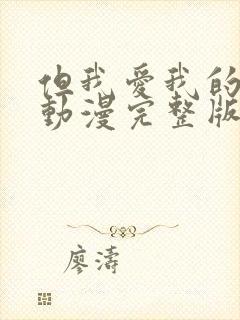 但我愛我的
動漫完整版
廖濤